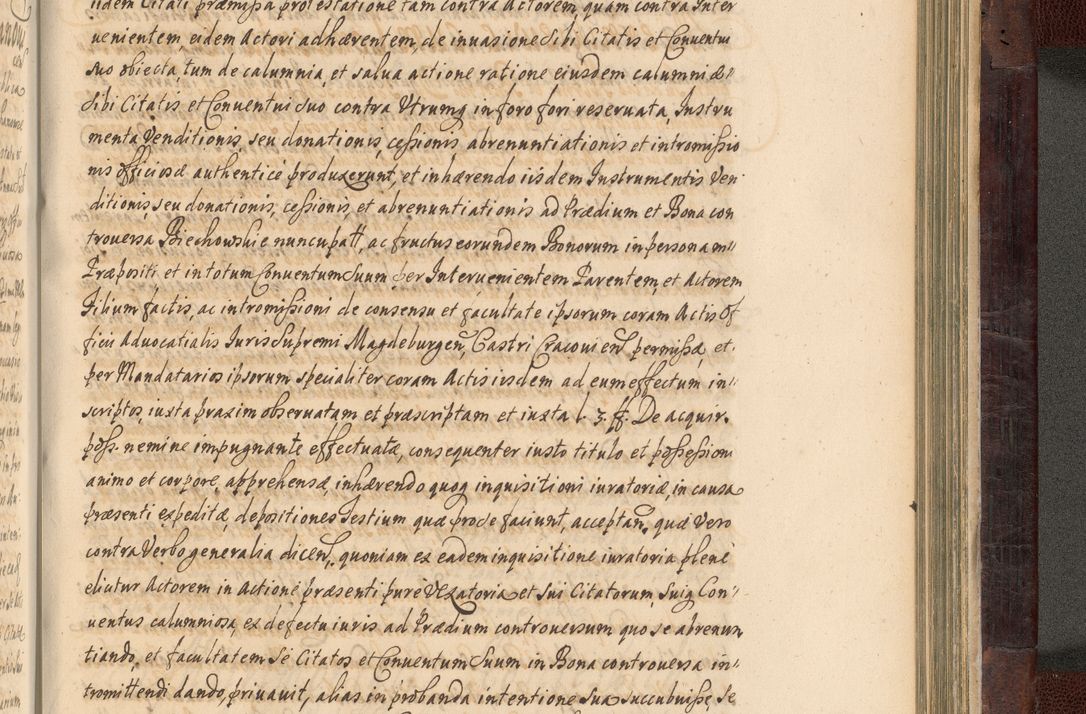 iidem Citati præmissa protestatione tam contra Actorem, quam contra Inter
uenientem, eidem Actori adhærentem, de inuasione Sibi Citatis et Conuentui
suo obiecta, tum de calumnia, et salua actione ratione eiusdem calumniæ
Sibi Citatis et Conuentui Suo contra Utrumq in foro fori reseruata, Instru
menta Venditionis, seu donationis, cessionis abrenuntiationis et intromissio
nis officiosæ authenticè produxerunt, et inhærendo iisdem Instrumentis Ven
ditionis, seu donationis, cessionis, et abrenuntiationis ad Prædium et Bona con
trouersa Biechowskie nuncupatt, ac fructus eorundem Bonorum in personam
Præpositi et in totum Conuentum Suum per Interuenientem Parentem, et Actorem
Filium factis, ac intromissioni de consensu et facultate ipsorum coram Actis Of
ficii Aduocatialis Juris Supremi Magdeburgen, Castri Cracouien permissæ, et
per Mandatarios ipsorum specialiter coram Actis iisdem ad eum effectum in
scriptos, iuxta praxim obseruatam et præscriptam et iuxta l. 3. ff. De acquir.
poss. nemine impugnante effectuatæ, consequenter iusto titulo et possessioni
animo et corpore, apprehensæ, inhærendo quoq inquisitioni iuratoriæ, in causa
præsenti expeditæ, depositiones Testium quæ pro se faciunt, acceptan, quæ vero
contra Verbo generalia dicen, quoniam ex eadem inquisitione iuratoria plenè
elicitur Actorem in Actione præsenti purè Vexatoria et sui Citatorum, Suiq Con
uentus calumniosa, ex defectu iuris ad Prædium controuersum quo se abrenun
tiando, et facultatem Se Citatos et Conuentum Suum in Bona controuersa in
tromittendi dando, priuauit, alias in probanda intentione sua succubuisse, se